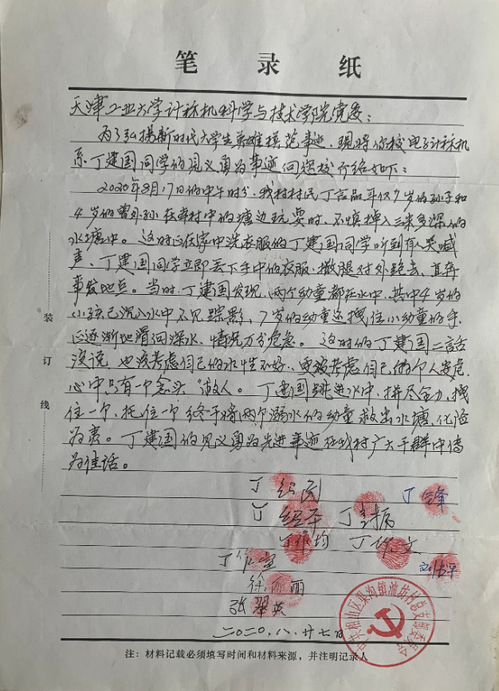 笔录纸
天津工业大学计标机科学与技术学院党委:
为了弘揚新时代大学生英雄模范事迹,现将你校电子计标机
系丁建国同学的见义勇为事迹向学校介绍如下:
2020年8月17日的中午时分,我村村民丁言品年仅7岁的孙子和
4岁的曾外孙在本村中的塘边玩耍时,不慎掉入三米多深的
水塘中。这时正在家中洗衣服的丁建国同学听到有人哭喊
声,丁建国同学立即丢下手中的衣服,撒腿对外跑去,直奔
事发地点。当时,丁建国发现,两个幼童都在水中,其中4岁的
小孩已沉入水中不见踪影,7岁的幼童还拽住小幼童的手
正逐渐地滑向深水,情况万分危急。这时的丁建国二話
没说,也没考虑自己的水性不好,更没考虑自己的个人安危,
心中只有一个念头"救人"。丁建国跳进水中,拼尽全力,拽
住一个,托住一个终于将两个溺水的幼童救出水塘,化险
为夷。丁建国的见义勇为先进事迹在我村广大干群中傳
为佳話。
装
订
线
丁
丁
丁
丁
丁作文
丁作
张翠英
二〇二〇.八.廿七日
注:材料记载必须填写时间和材料来源,并注明记录人